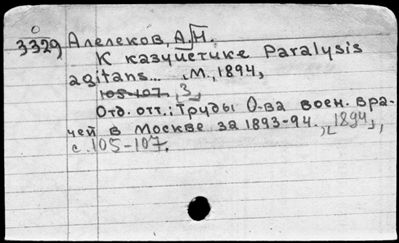 3329 Алелеков, А.Н.
К казуистике Paralysis
agitans... , М., 1894,
105-107. 3.
Отд. отт.: Труды О-ва воен. вра-
чей в Москве за 1893-94. , 1894,
с. 105-107.